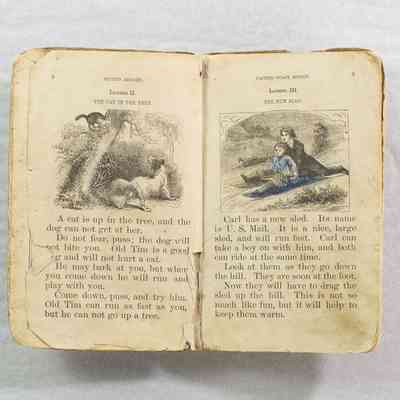 Lesson II.
THE CAT IN THE TREE.
A cat is up in the tree, and the
dog can not get at her.
Do not fear, puss; the dog will
not bite you. Old Tim is a good
og and will not hurt a cat.
He may bark at you, but when
you come down he will run and
play with you.
Come down, puss, and try him.
Old Tim can run as fast as you,
but he can not go up a tree.
Lesson III.
THE NEW SLED.
Carl has a new sled. Its name
is U. S. Mail. It is a nice, large
sled, and will run fast. Carl can
take a boy on with him, and both
can ride at the same time.
Look at them as they go down
the hill. They are soon at the foot,
Now they will have to drag the
sled up the hill. This is not so
much like fun, but it will help to
keep them warm.